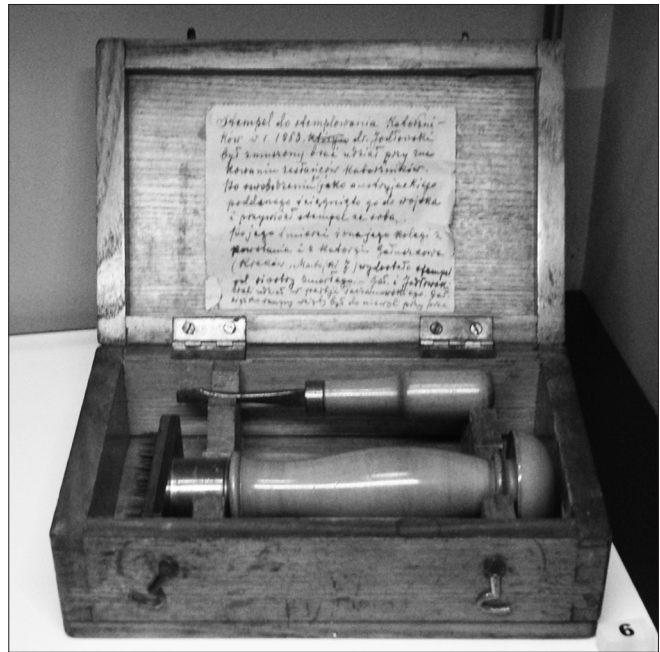 Stempel do stemplowania Katorżni-
ków z r. 1863, którym dr. Jodłowski
był zmuszony brać udział przy zna
kowaniu zesłańców katorżników.
Po uwolnieniu jako austryjackiego
poddanego ściągnięto go do wojska
i przywiózł stempel ze sobą.
Po jego śmierci żona jego kolegi z
powstania i z katorgi
(Kraków, 7) wydostała stempel
od siostry zmarłego. i Jodłowski
brał udział w partji
wzięty był do niewoli przy
6